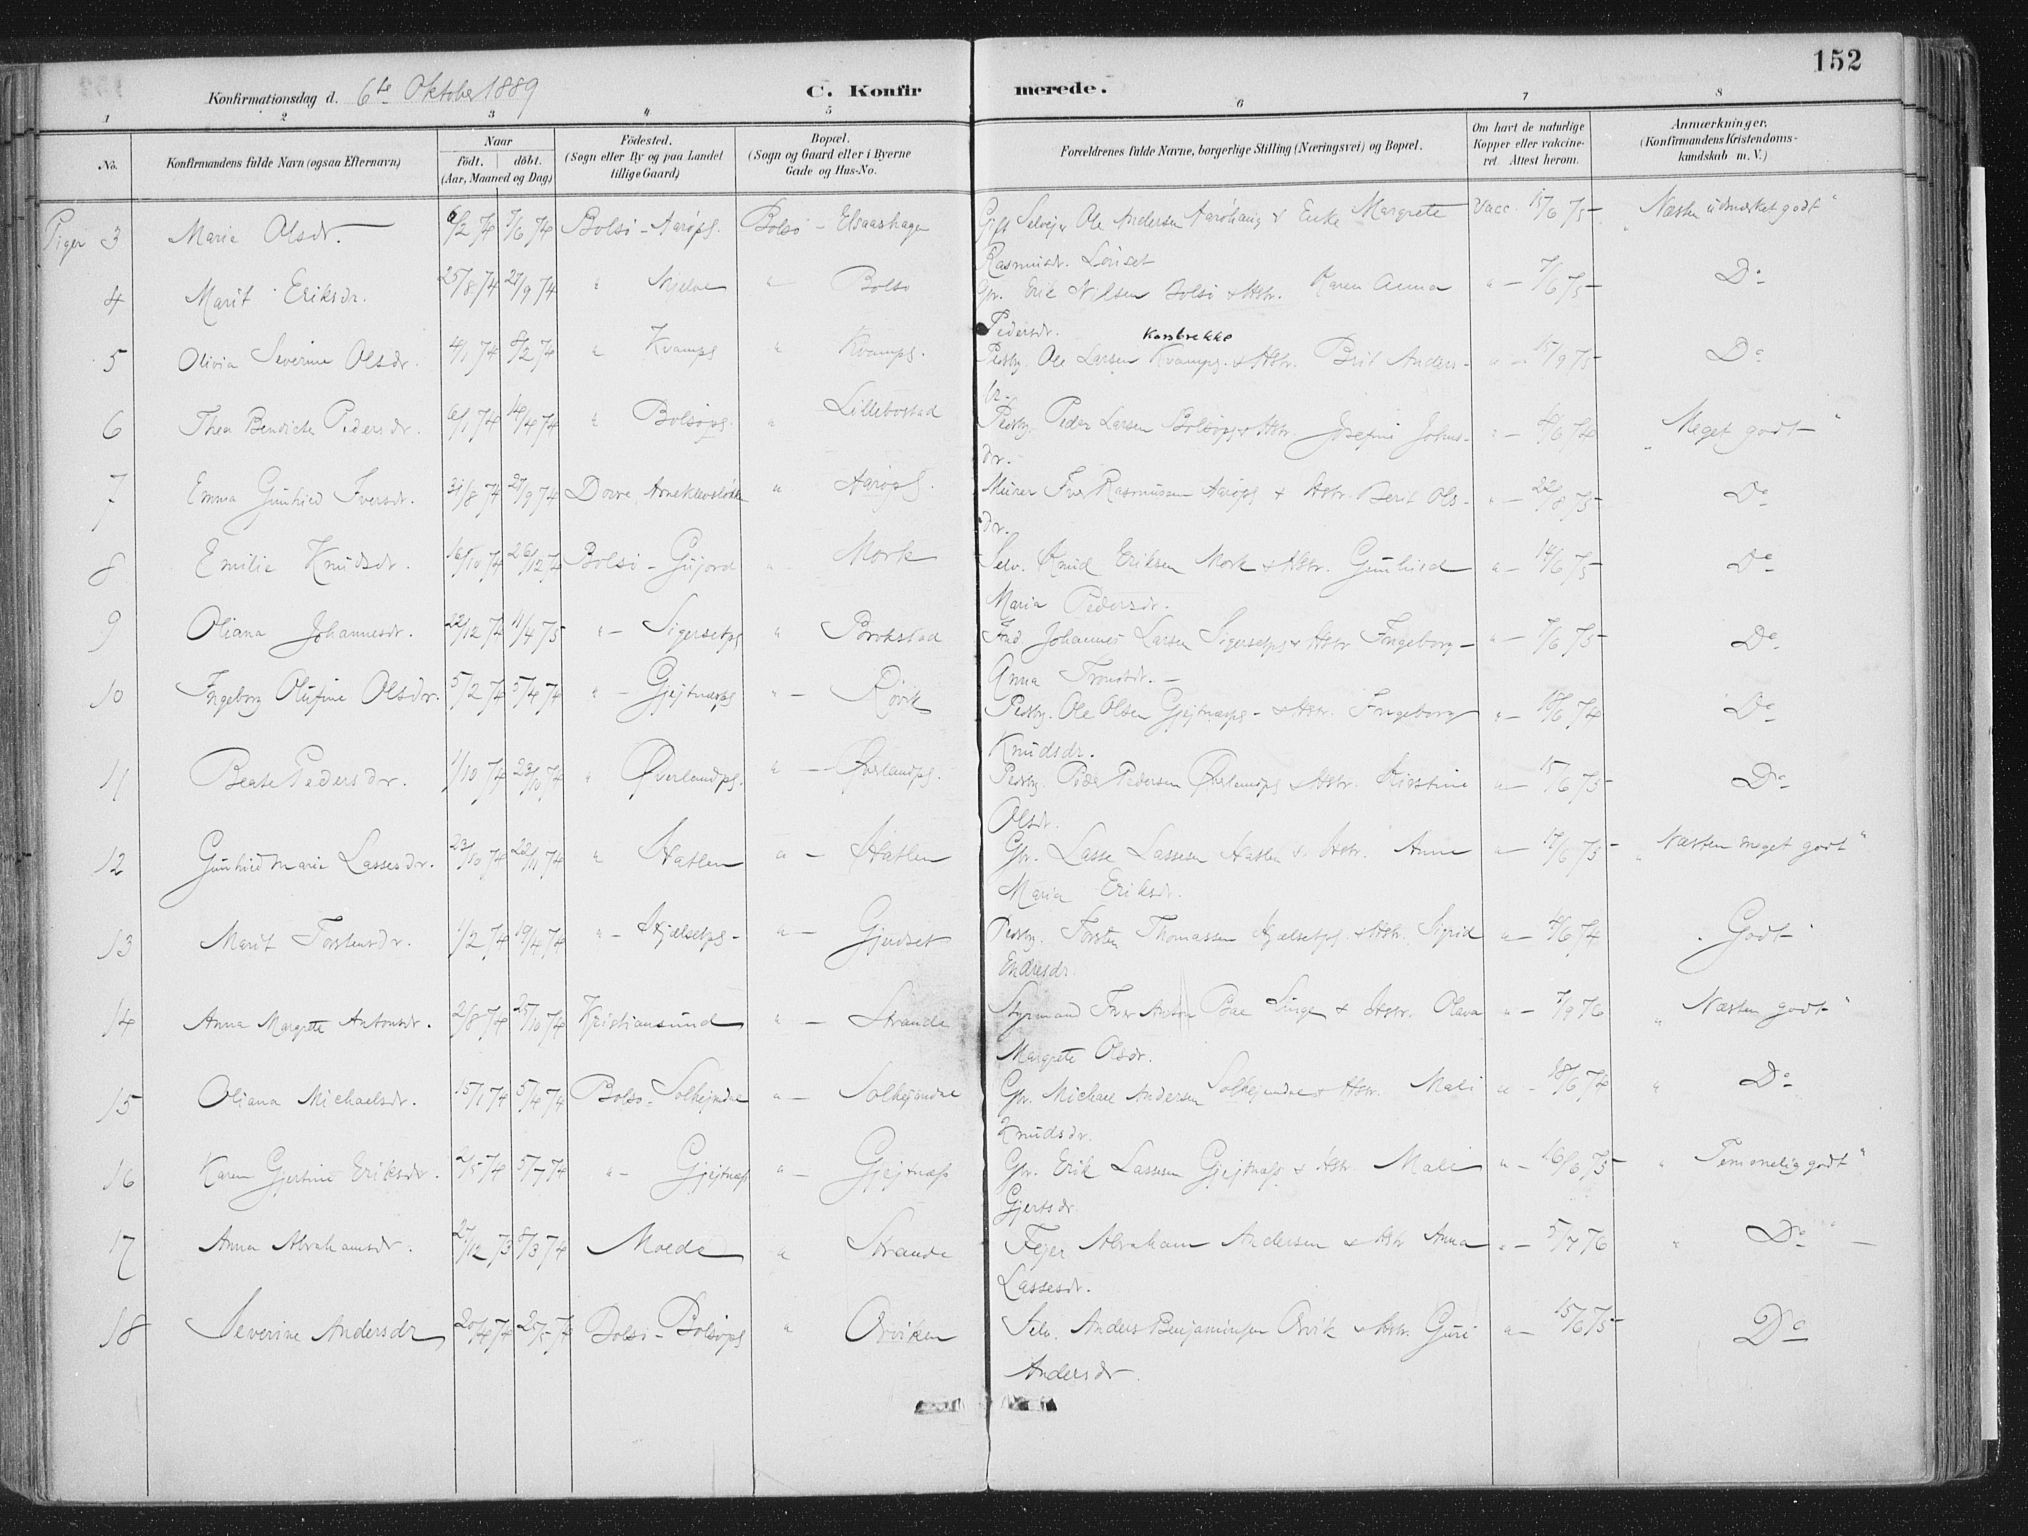 152
Konfirmationsdag d. 6te Oktober 1889
C. Konfirmerede.
1 2 3 4 5 6 7 8
No. Konfirmandens fulde Navn (ogsaa Efternavn) Naar født. døbt. (Aar, Maaned og Dag) Fødested. (Sogn eller By og paa Landet tillige Gaard) Bopæl. (Sogn og Gaard eller i Byerne Gade og Hus-No.) Forældrenes fulde Navne, borgerlige Stilling (Næringsvei) og Bopæl. Om havt de naturlige Kopper eller vakcineret. Attest herom. Anmærkninger. (Konfirmandens Kristendomskundskab m. V.)
Piger 3 Marie Olsdr. 6/2 74 7/6 74 Bolsø - Aarøpl. Bolsø - Elsaashagen Gift Selvejer Ole Andersen Aarøhaug & Enke Margrete Vacc. 15/6 75 "Næsten udmærket godt"
Rasmusdr. Lønset
4 Marit Eriksdr. 25/8 74 27/9 74 " " Bolsø Gbr. Erik Nilsen Bolsø & Hstr. Karen Anna " - 7/6 75 Do
Pedersdr.
Korsbrekke
5 Olivia Severine Olsdr. 4/1 74 8/2 74 " Kvampl " Kvampl. Pladsbg. Ole Larsen Kvampl. & Hstr. Brit Anders- " - 15/9 75 Do
dr.
6 Thea Bendicte Pedersdr. 6/1 74 14/4 74 " Bolsøpl. " Lillebostad Pladsbg. Peder Larsen Bolsøpl & Hstr. Josefine Johns- " - 4/6 74 "Meget godt"
dr.
7 Emma Gunhild Iversdr. 31/8 74 27/9 74 Dovre, " Aarøpl. Murer Iver Rasmussen Aarøpl & Hstr. Berit Ols- " - 22/8 75 Do
dr.
8 Emilie Knudsdr. 16/10 74 26/12 74 Bolsø - Gujord " Mork Selv. Knud Eriksen Mork & Hstr. Gunhild " - 14/6 75 Do
Maria Pedersdr.
9 Oliana Johannesdr. 22/12 74 11/4 75 " - Sigersetpl " Brokstad Ind. Johannes Larsen Sigersetpl & Hstr. Ingeborg " - 7/6 75 Do
Anna Tronsdr. -
10 Ingeborg Olufine Olsdr. 5/2 74 5/4 74 " - Gjejtnæspl " - Røvik Pladsbg. Ole Olsen Gjejtnæspl - & Hstr. Ingeborg " - 18/6 74 Do
Knudsdr.
11 Beate Pedersdr. 1/10 74 23/10 74 " Øverlandpl. " - Øverlandpl. Pladsbg. Peder Pedersen Øverlandpl & Hstr. Kirstine " - 15/6 75 Do
Olsdr.
12 Gunhild Marie Lassesdr. 23/10 74 22/11 74 " Hatlen " - Hatlen Gbr. Lasse Lassesen Hatlen & Hstr. Anne " - 17/6 75 "Næsten meget godt"
Maria Eriksdr.
13 Marit Torstensdr. 1/2 74 19/4 74 " - Hjælsetpl - " - Gjendset Pladsbg. Torsten Thomassen Hjælsetpl. & Hstr. Sigrid " - 4/6 74 "Godt"
Endresdr.
14 Anna Margrete Antonsdr. 2/8 74 25/10 74 Kristiansund " - Strande Styrmand Iver Anton Bae & Hstr. Olava " - 7/9 76 "Næsten godt"
Margrete Olsdr.
15 Oliana Michaelsdr. 15/1 74 5/4 74 Bolsø - Solhejmdal " - Solhejmdal Gbr. Michael Andersen Solhejmdal & Hstr. Mali " - 18/6 74 " Do
Knudsdr.
16 Karen Gjertine Eriksdr. 2/5 74 5/7 74 " - Gjejtnæs " - Gjejtnæs Gbr. Erik Lassesen Gjejtnæs & Hstr. Mali " - 16/6 75 "Temmelig godt"
Gjertsdr.
17 Anna Abrahamsdr. 27/12 73 8/3 74 Molde " Strande Fejer Abraham Andersen & Hstr Anna " - 5/7 76 " Do -
Lassesdr.
18 Severine Andersdr 20/4 74 25/5 74 Bolsø - Bolsøpl " Orviken Selv. Anders Benjaminsen Orvik & Hstr. Guri " - 15/6 75 Do
Andersdr.